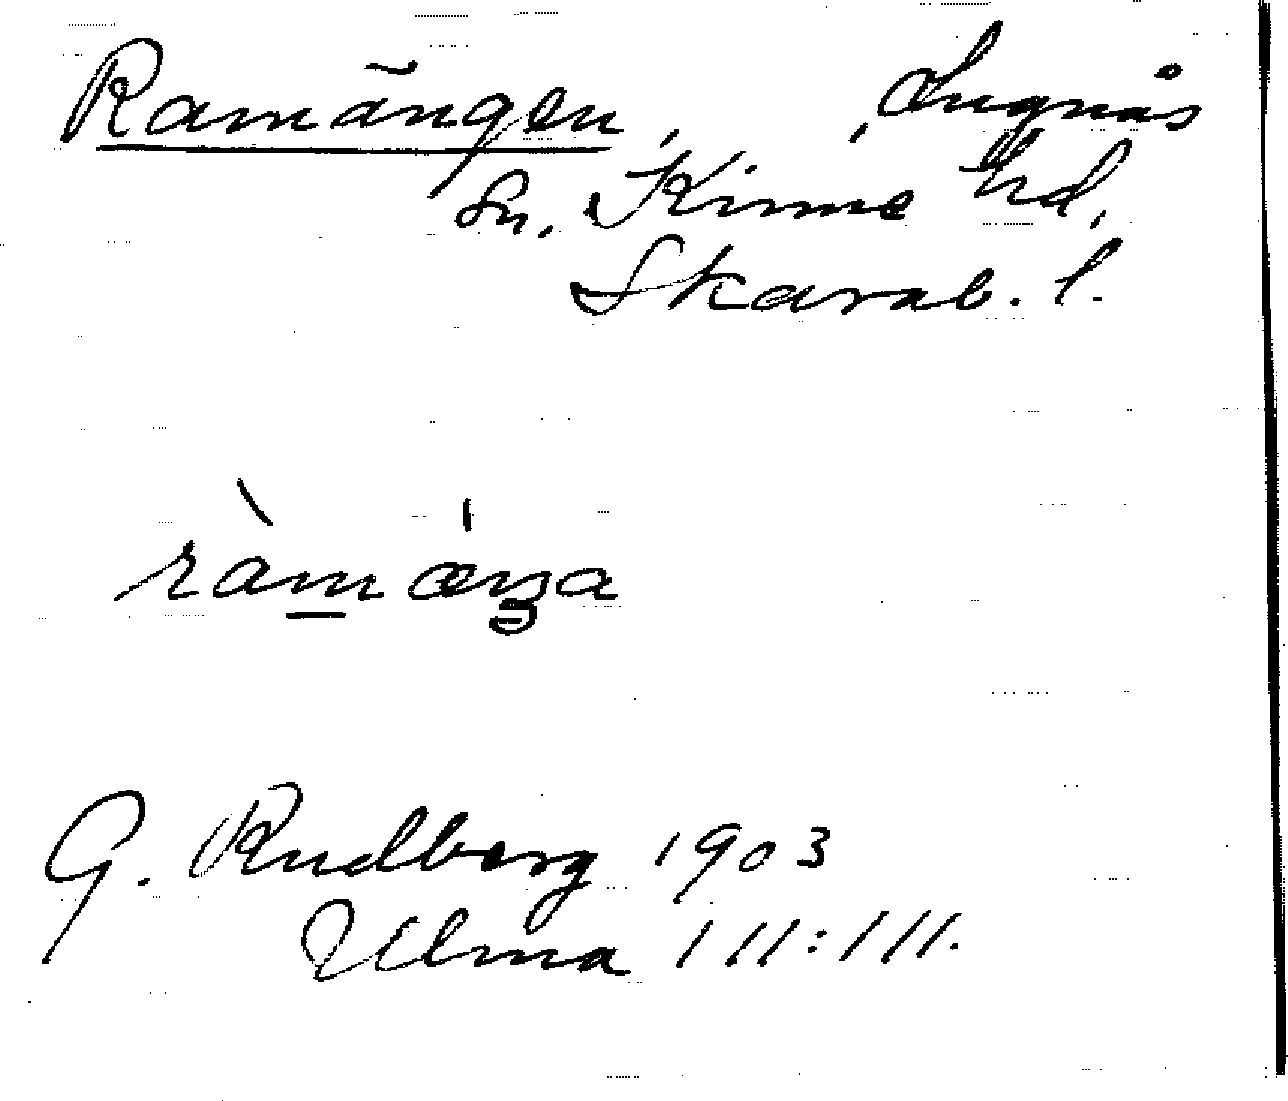 Ramängen, , Lugnås
Sn, Kinne hd,
Skarab. l.
ràmæŋa
G. Rudberg 1903
Ulma 111:111.